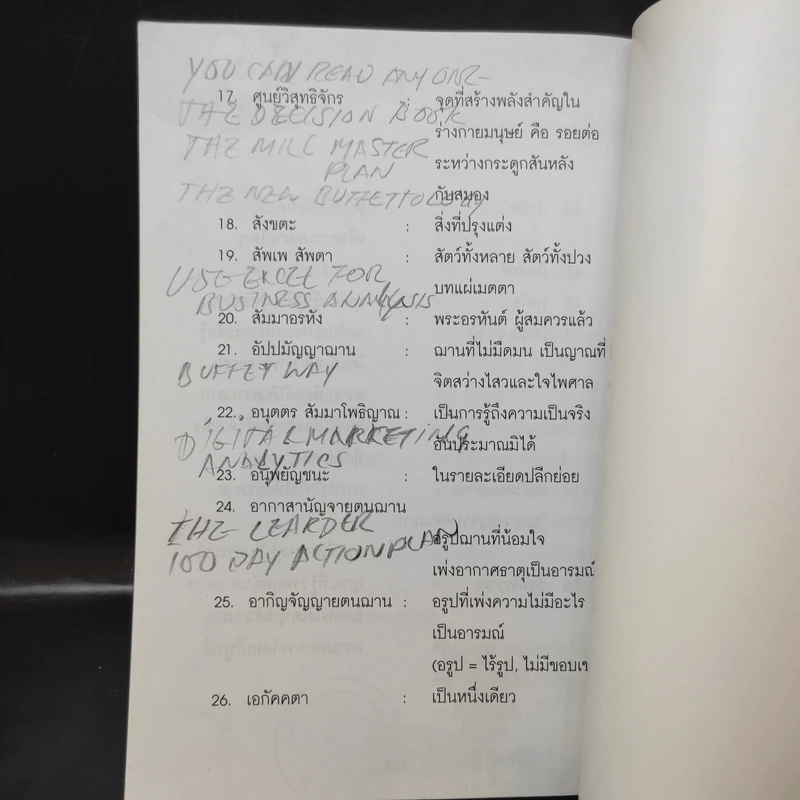 YOU CAN READ ANYONE
17. ศูนย์วิสุทธิจักร : จุดที่สร้างพลังสำคัญใน
THE DECISION BOOK
ร่างกายมนุษย์ คือ รอยต่อ
THE MILL MASTER
ระหว่างกระดูกสันหลัง
PLAN
THE NEW BUFFETTOLOGY
กับสมอง
18. สังขตะ : สิ่งที่ปรุงแต่ง
19. สัพเพ สัพตา : สัตว์ทั้งหลาย สัตว์ทั้งปวง
USE EXCEL FOR
บทแผ่เมตตา
BUSINESS ANALYSIS
20. สัมมาอรหัง : พระอรหันต์ ผู้สมควรแล้ว
21. อัปปมัญญาฌาน : ฌานที่ไม่มืดมน เป็นญาณที่
BUFFET WAY
จิตสว่างไสวและใจไพศาล
22. อนุตตร สัมมาโพธิญาณ : เป็นการรู้ถึงความเป็นจริง
DIGITAL MARKETING
อันประมาณมิได้
ANALYTICS
23. อนุพยัญชนะ : ในรายละเอียดปลีกย่อย
24. อากาสานัญจายตนฌาน
THE LEARDER
อรูปฌานที่น้อมใจ
100 DAY ACTION PLAN
เพ่งอากาศธาตุเป็นอารมณ์
25. อากิญจัญญายตนฌาน : อรูปที่เพ่งความไม่มีอะไร
เป็นอารมณ์
(อรูป = ไร้รูป, ไม่มีขอบเ
26. เอกัคคตา : เป็นหนึ่งเดียว